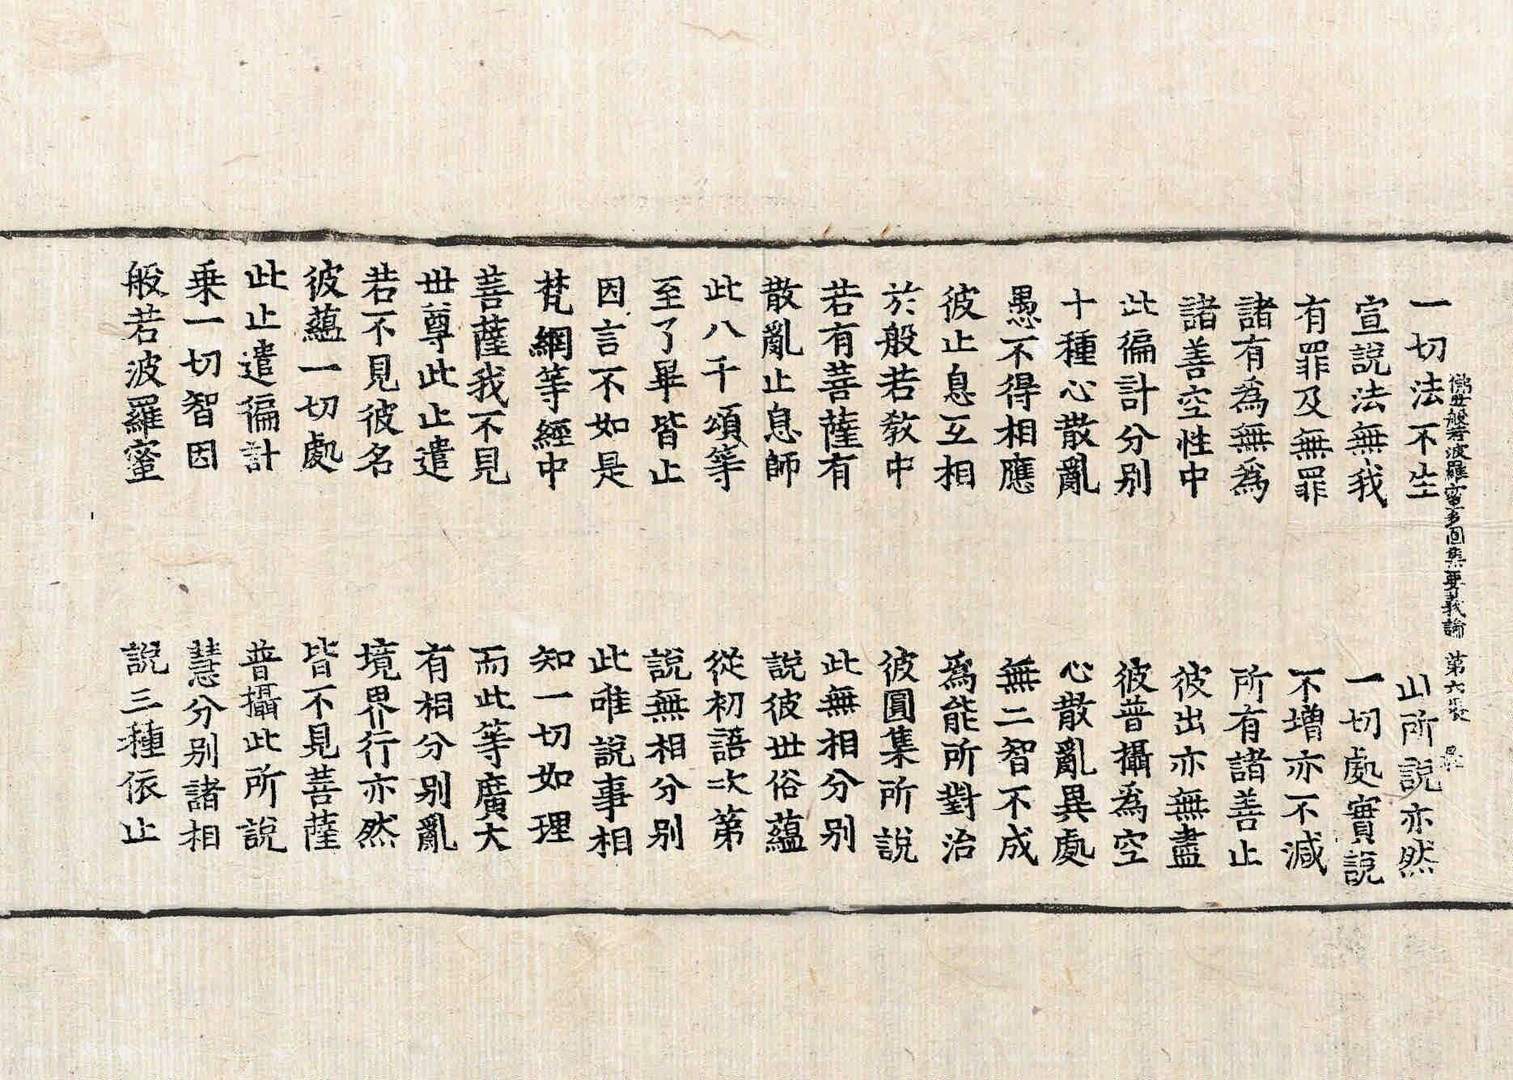 佛母般若波羅蜜多圓集要義論 第六張
一切法不生 此所說亦然
宣說法無我 一切處實說
有罪及無罪 不增亦不減
諸有爲無爲 所有諸善止
諸善空性中 彼出亦無盡
此徧計分別 彼普攝爲空
十種心散亂 心散亂異處
愚不得相應 無二智不成
彼止息互相 爲能所對治
於般若教中 彼圓集所說
若有菩薩有 此無相分別
散亂止息師 說彼世俗蘊
此八千頌等 從初語次第
至了畢皆止 說無相分別
因言不如是 此唯說事相
梵網等經中 知一切如理
菩薩我不見 而此等廣大
世尊此止遣 有相分別亂
若不見彼名 境界行亦然
彼蘊一切處 皆不見菩薩
此止遣徧計 普攝此所說
乘一切智因 慧分別諸相
般若波羅蜜 說三種依止